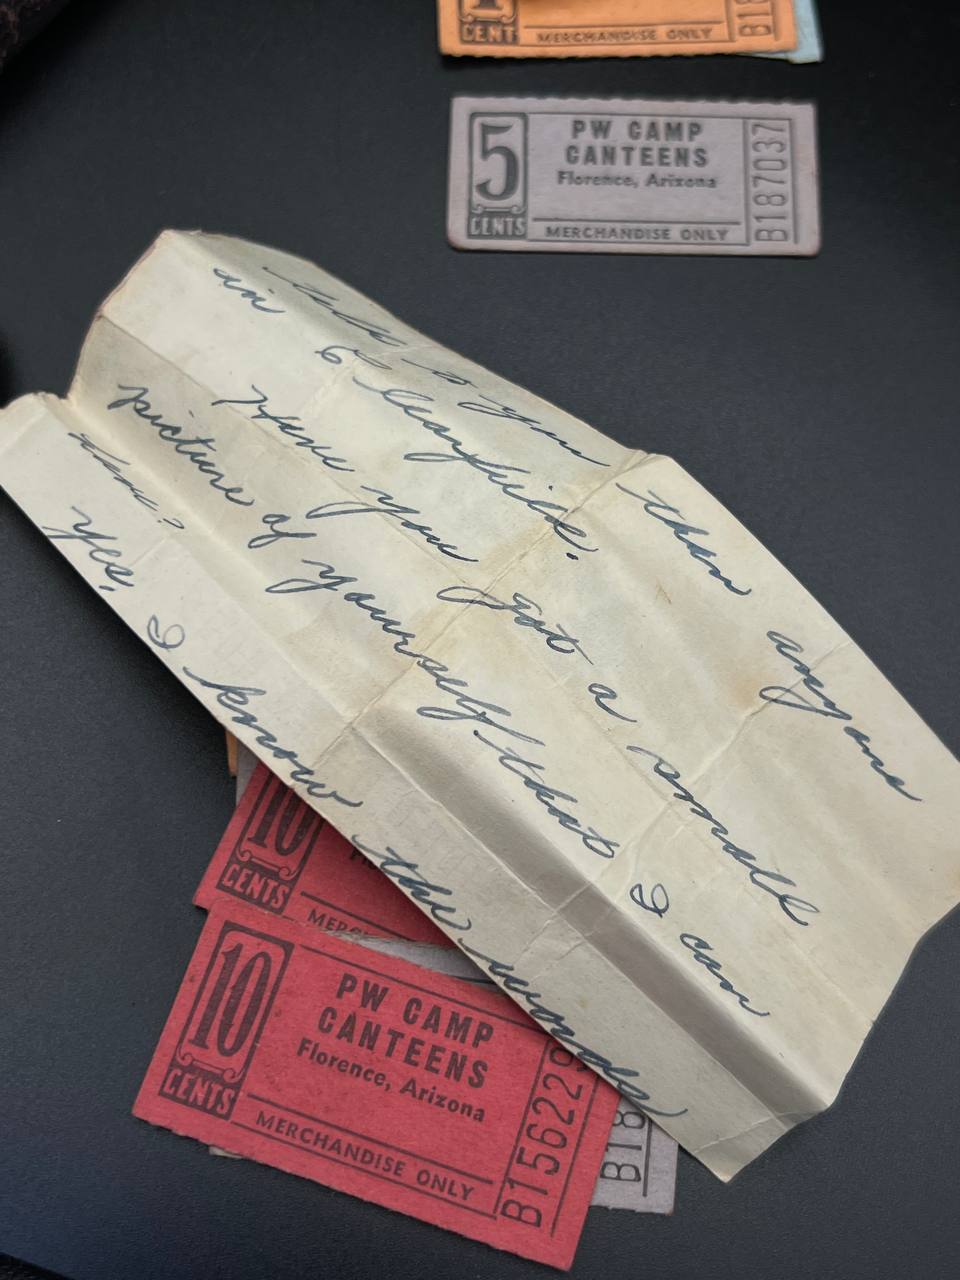 1
CENT
MERCHANDISE ONLY
B18
5
CENTS
PW CAMP
CANTEENS
Florence, Arizona
MERCHANDISE ONLY
B187037
to you than anyone
Have you got a small
picture of yourself that I can
Yes, I know the words
10
CENTS
10
CENTS
PW CAMP
CANTEENS
Florence, Arizona
MERCHANDISE ONLY
B156229
B18